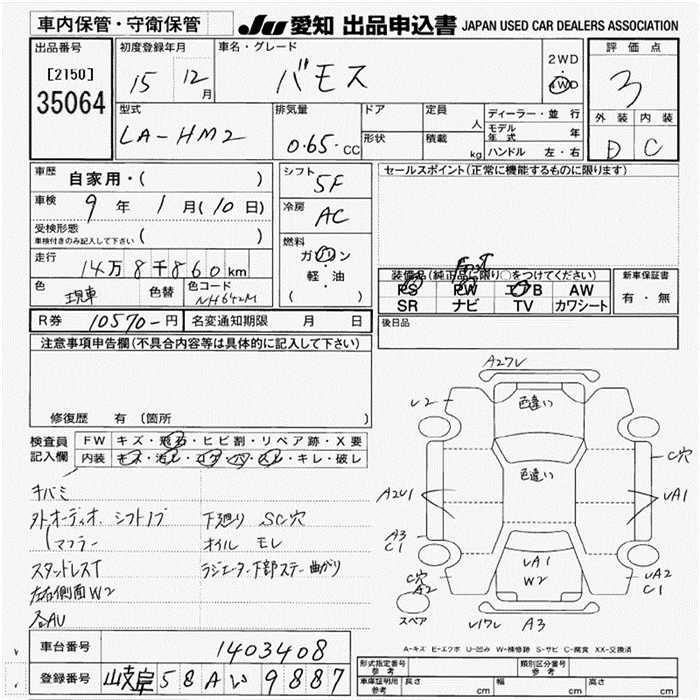 車内保管・守衛保管
JU 愛知 出品申込書 JAPAN USED CAR DEALERS ASSOCIATION
出品番号
[2150]
35064
初度登録年月
15 12月
車名・グレード
バモス
2WD
4WD
評価点
3
外装 内装
D C
型式
LA-HM2
排気量
0.65.cc
ドア
形状
定員
人
積載
kg
ディーラー・並行
モデル年式 年
ハンドル 左・右
車歴
自家用・( )
車検 9年 1月(10日)
受検形態
車検付きのみ記入して下さい ( )
走行
14万8千860km
色 現車 色替 色コード NH642M
シフト 5F
冷房 AC
燃料
ガソリン
・
軽・油
( )
セールスポイント(正常に機能するものに限ります)
装備品(純正品に限り○をつけてください)
PS PW エアB AW
SR ナビ TV カワシート
新車保証書
有・無
後日品
R券 10570-円
名変通知期限 月 日
注意事項申告欄(不具合内容等は具体的に記入して下さい)
修復歴 有 (箇所
検査員記入欄
FW キズ・飛石・ヒビ割・リペア跡・X要
内装 キズ・汚レ・コゲ・穴・スレ・キレ・破レ
キバミ
外オーディオ、シフトノブ
(マフラー
スタッドレスT
左右側面W2
各AU
下廻り SC穴
オイル モレ
ラジエーター下部ステー曲がり
A2キレ
U2
色違い
色違い
C穴
A2U1
UA1
A3
C1
C穴
A2
UA1
W2
UA2
C1
スペア
A3
A-キズ E-エクボ U-凹み W-補修跡 S-サビ C-腐食 XX-交換済
車台番号 1403408
登録番号 岐阜 58 A い 9887
形式指定番号
参考
類別区分番号
参考
車庫証明用
参考
長さ cm 幅 cm 高さ cm